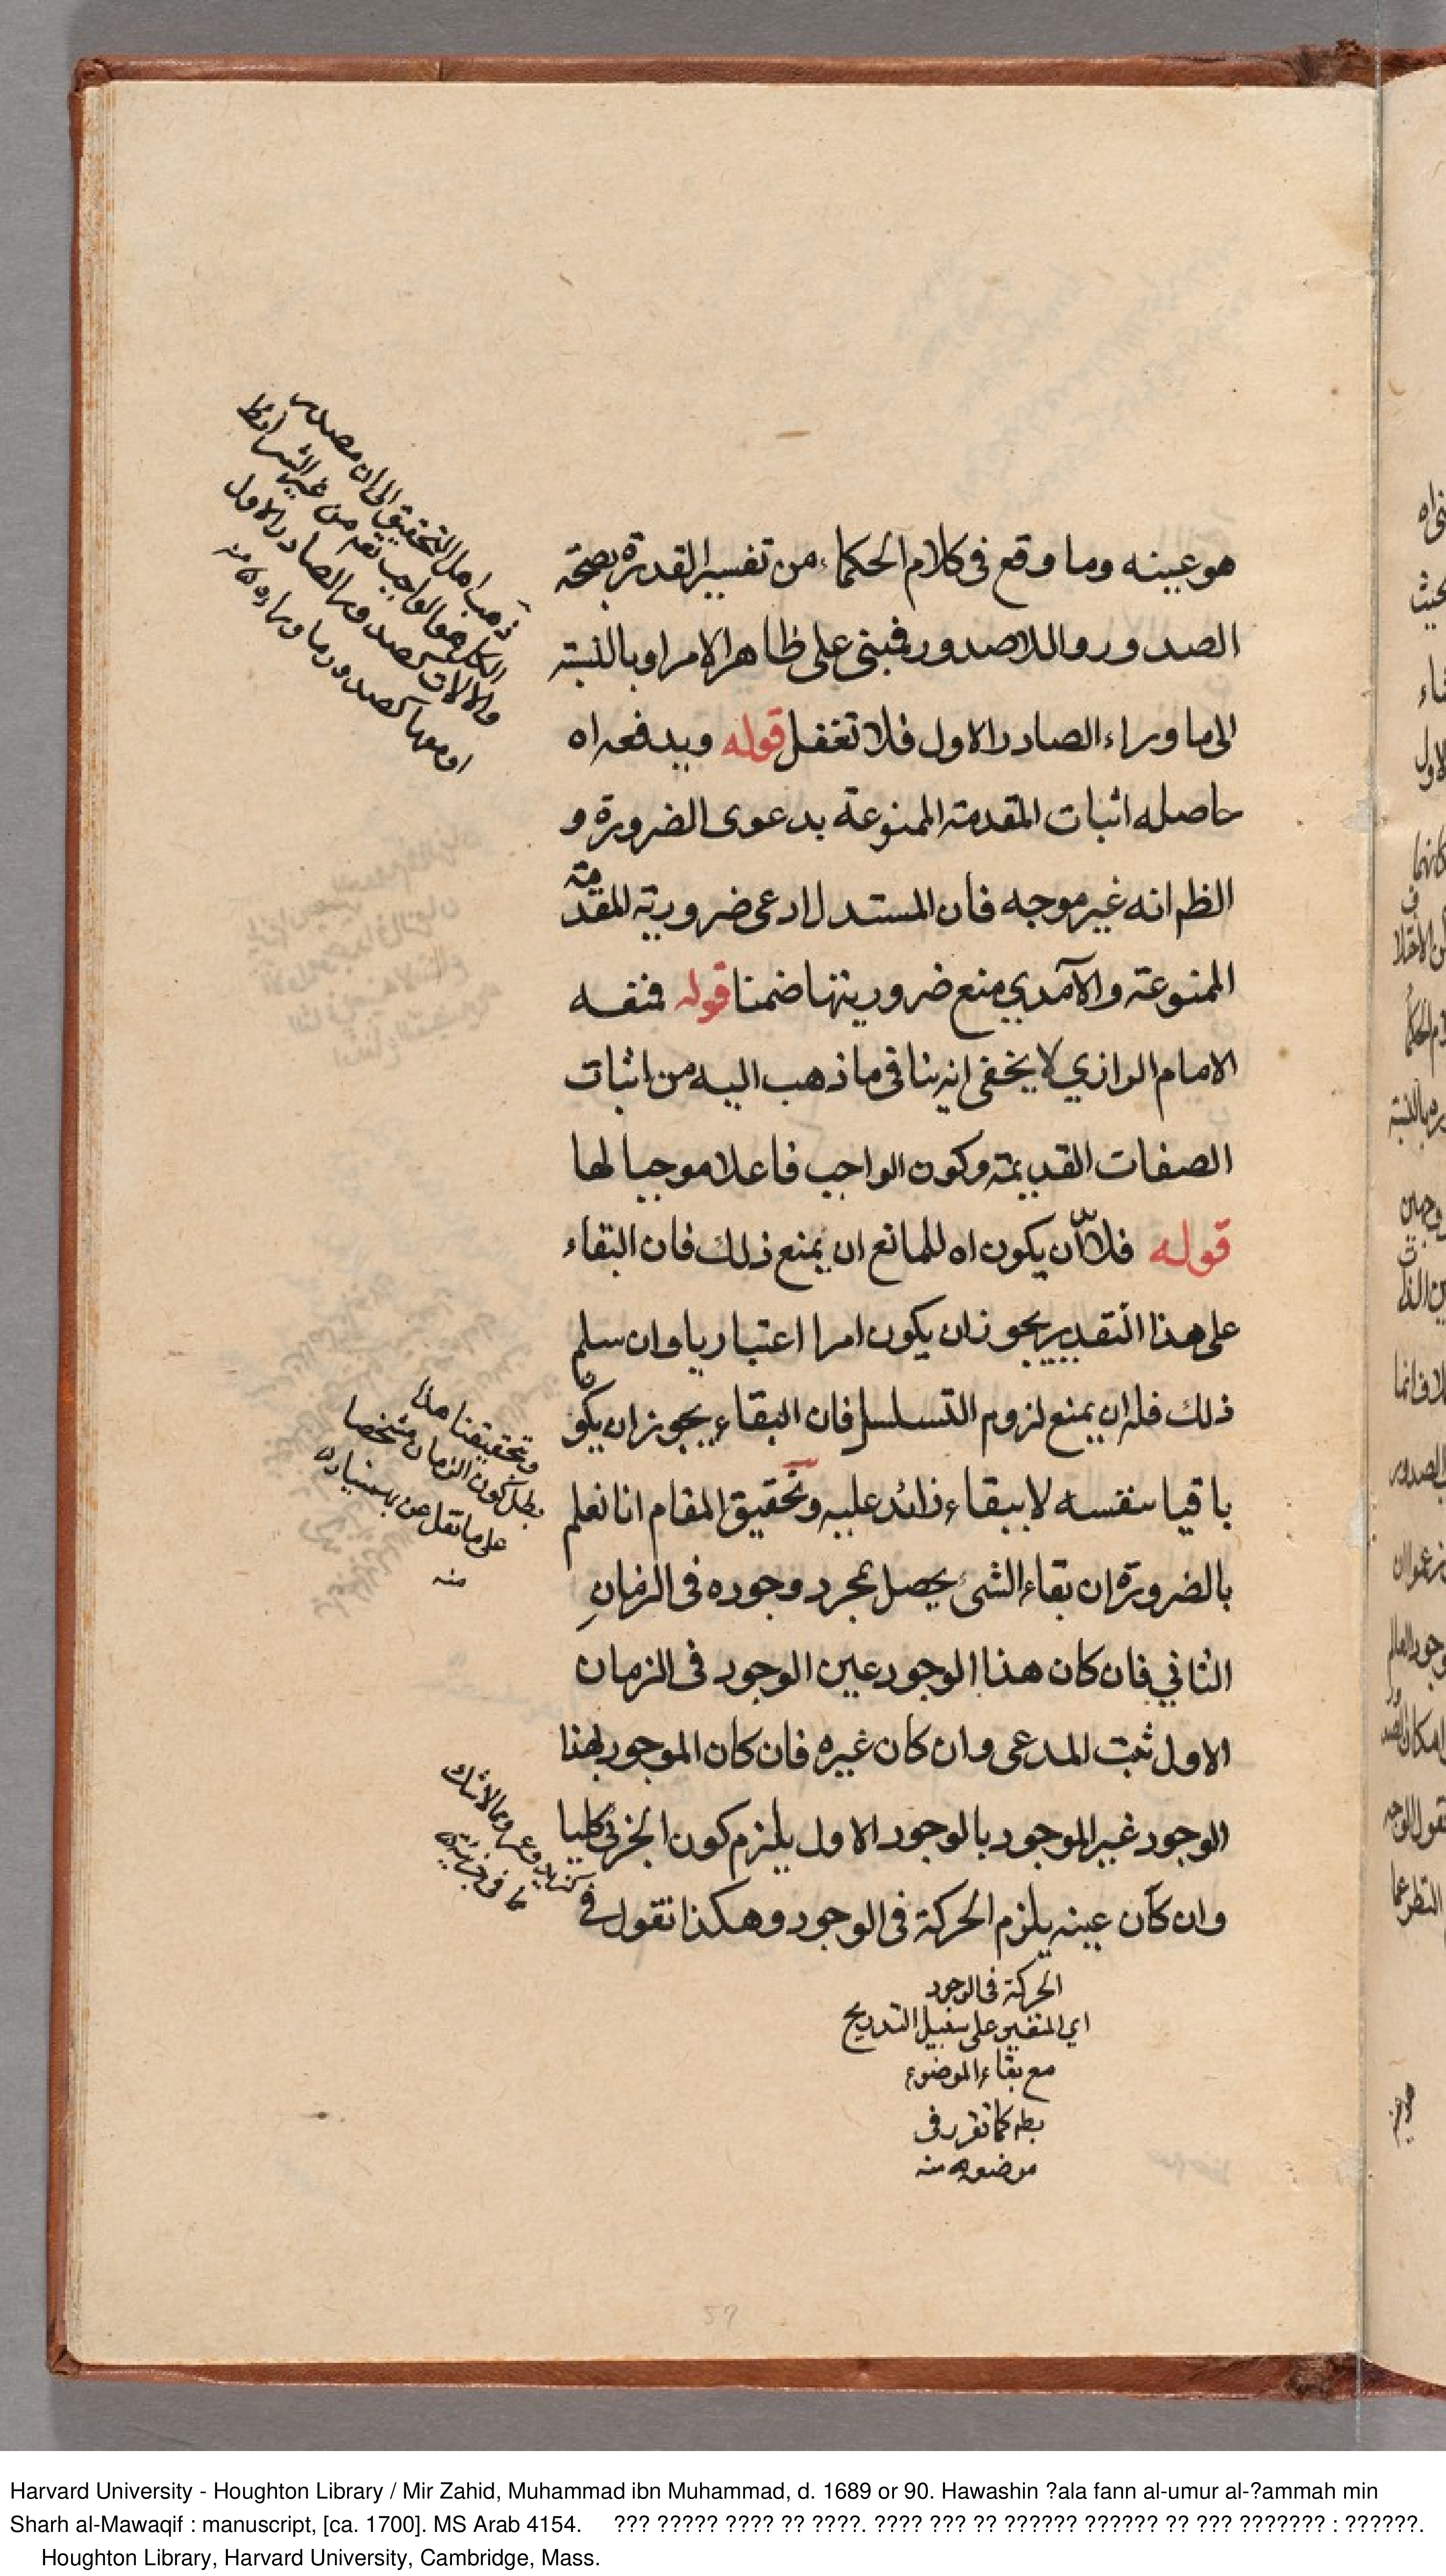 هو عينه وما وقع في كلام الحكماء من تفسير القدرة بصحة
الصدور واللاصدور فمبني على ظاهر الامر او بالنسبة
الى ما وراء الصادر الاول فلا تغفل قوله ويدفعه اه
حاصله اثبات المقدمة الممنوعة بدعوى الضرورة و
الظم انه غير موجه فان المستدل ادعى ضرورية المقدمة
الممنوعة والآمدي منع ضروريتها ضمنا قوله فنفه
الامام الرازي لا يخفى انه ينافي ما ذهب اليه من اثبات
الصفات القديمة وكون الواجب فاعلا موجبا لها
قوله فلان يكون اه للمانع ان يمنع ذلك فان البقاء
على هذا التقدير يجوز ان يكون امرا اعتباريا وان سلم
ذلك فله ان يمنع لزوم التسلسل فان البقاء يجوز ان يكون
باقيا بنفسه لا ببقاء زائد عليه وتحقيق المقام انا نعلم
بالضرورة ان بقاء الشئ يحصل بمجرد وجوده في الزمان
الثاني فان كان هذا الوجود عين الوجود في الزمان
الاول ثبت المدعى وان كان غيره فان كان الموجود بهذا
الوجود غير الموجود بالوجود الاول يلزم كون الجزئي كليا
وان كان عينه يلزم الحركة في الوجود وهكذا نقول في
الحركة في الوجود
اي التغير على سبيل التدريج
مع بقاء الموضوع
بط كما تقرر في
موضعه منه
ذهب اهل التحقيق الى ان مصدر
الكل هو الواجب تعه من غير الشرائط
والالات كصدور الصادر الاول
او معها كصدور ما وراءه منه
وتحقيقنا هذا
بطل كون الزمان مشخصا
على ما نقل عن بهمنيار
منه
كزيد وعمرو مما لا شك
في جزئيته
57
Harvard University - Houghton Library / Mir Zahid, Muhammad ibn Muhammad, d. 1689 or 90. Hawashin ?ala fann al-umur al-?ammah min
Sharh al-Mawaqif : manuscript, [ca. 1700]. MS Arab 4154. ??? ????? ???? ?? ????. ???? ??? ?? ?????? ?????? ?? ??? ??????? : ??????.
Houghton Library, Harvard University, Cambridge, Mass.